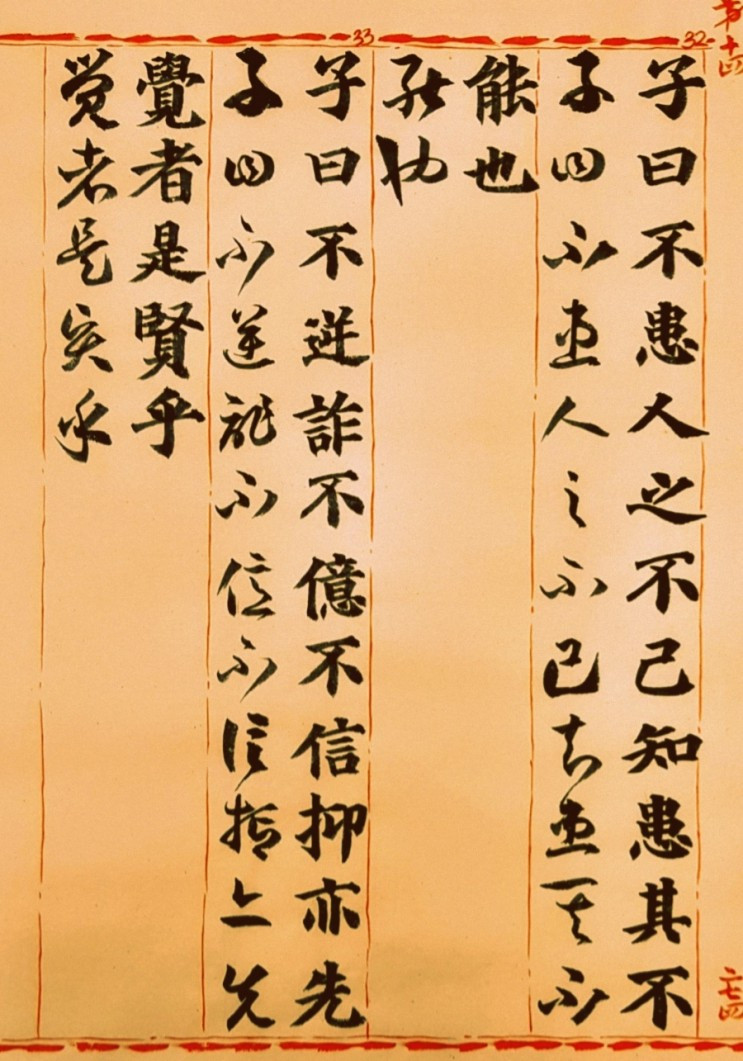 第十四
二七四
32
子曰不患人之不己知患其不
子曰不患人之不己知患其不
能也
能也
33
子曰不逆詐不億不信抑亦先
子曰不逆詐不億不信抑亦先
覺者是賢乎
覺者是賢乎